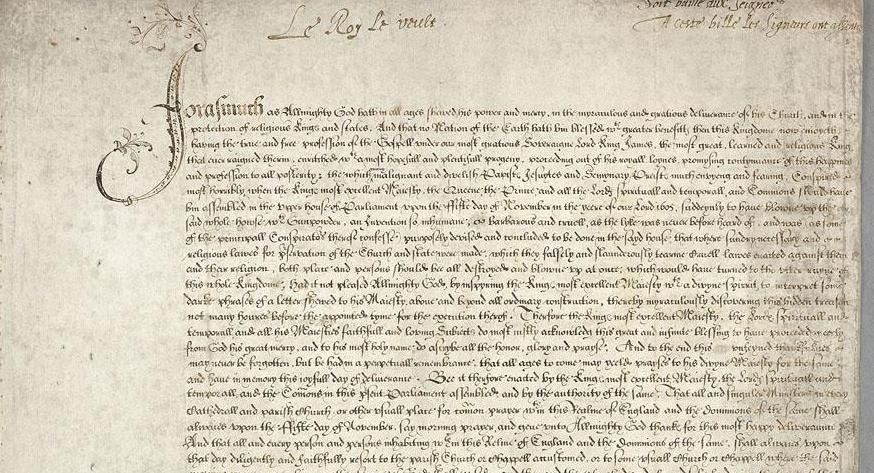 Soit baille aux Seigneurs
Le Roy le veult.
A ceste bille les Signeurs ont assentus
Forasmuch as Allmighty God hath in all ages shewed his power and mercy, in the myraculous and gratious deliverance of his Church, and in the
protection of religious Kings and states, And that no Nation of the Earth hath bin blessed wth greater benefitts then this Kingdome now enioyeth
having the true and free profession of the Gospell under our most gratious Soveraigne Lord King James, the most great, learned and religious King
that ever raigned therin, enritched wth a most hopefull and plentifull progeny, proceeding out of his royall loynes, promysing contynuance of this happines
and profession to all posterity; the which malignant and divelish Papists, Jesuytes and Semynary Preists much envyeng and fearing, Conspired
most horribly, when the Kings most excellent Maiesty, the Queene the Prince and all the Lords spirituall and temporall, and Commons should have
bin assembled in the Upper house of Parliament upon the ffifte day of November in the yeere of our Lord 1605, suddenly to have blowne up the
said whole howse wth Gunpowder, an Invention so inhumane, barbarous and cruell, as the lyke was never before heard of, and was as some
of the principall Conspirators thereof confesse purposely devised and concluded to be done in the sayd house, that where sundry necessary and
religious lawes for pservation of the Church and state were made, which they falsely and slaunderously tearme Cruell lawes enacted against them
and their religion, both place and persons should bee all destroyed and blowne up at once; which would have turned to the utter ruyne of
this whole Kingdome, Had it not pleased Allmighty God, by inspyring the Kings most excellent Maiesty wth a divyne spirit, to interpret some
darke phrases of a letter shewed to his Maiesty, above and beyond all ordynary construction, thereby myraculously discovering this hidden treason
not many howres before the appoynted tyme for the execution therof. Therfore the Kings most excellent Maiesty, the Lords Spirituall and
temporall and all his Maiesties faithfull and loving Subiects do most iustly acknowledg this great and infinite blessing to have proceeded meerly
from God his great mercy, and to his most holy name do ascrybe all the honor, glory and prayse. And to the end this unfeyned thankfulnes
may never be forgotten, but be had in a perpetuall remembrance, that all ages to come may yeeld prayses to his divyne Maiesty for the same
and have in memory this ioyfull day of deliverance. Bee it therfore enacted by the Kings most excellent Maiesty, the Lords spirituall and
temporall, and the Comons in this psent Parliament assembled and by the authority of the same; That all and singuler Ministers in every
Cathedrall and parish Church or other usuall place for comon prayer wthin this Realme of England and the dominions of the same shall
alwaies upon the ffifte day of November, say morning prayer, and geve unto Allmighty God thanks for this most happy deliverance
And that all and every person and persons inhabiting wthin this Realme of England and the dominions of the same, shall alwaies upon
that day diligently and faithfully resort to the parish Church or Chappell accustomed, or to some usuall Church or Chappell where the said